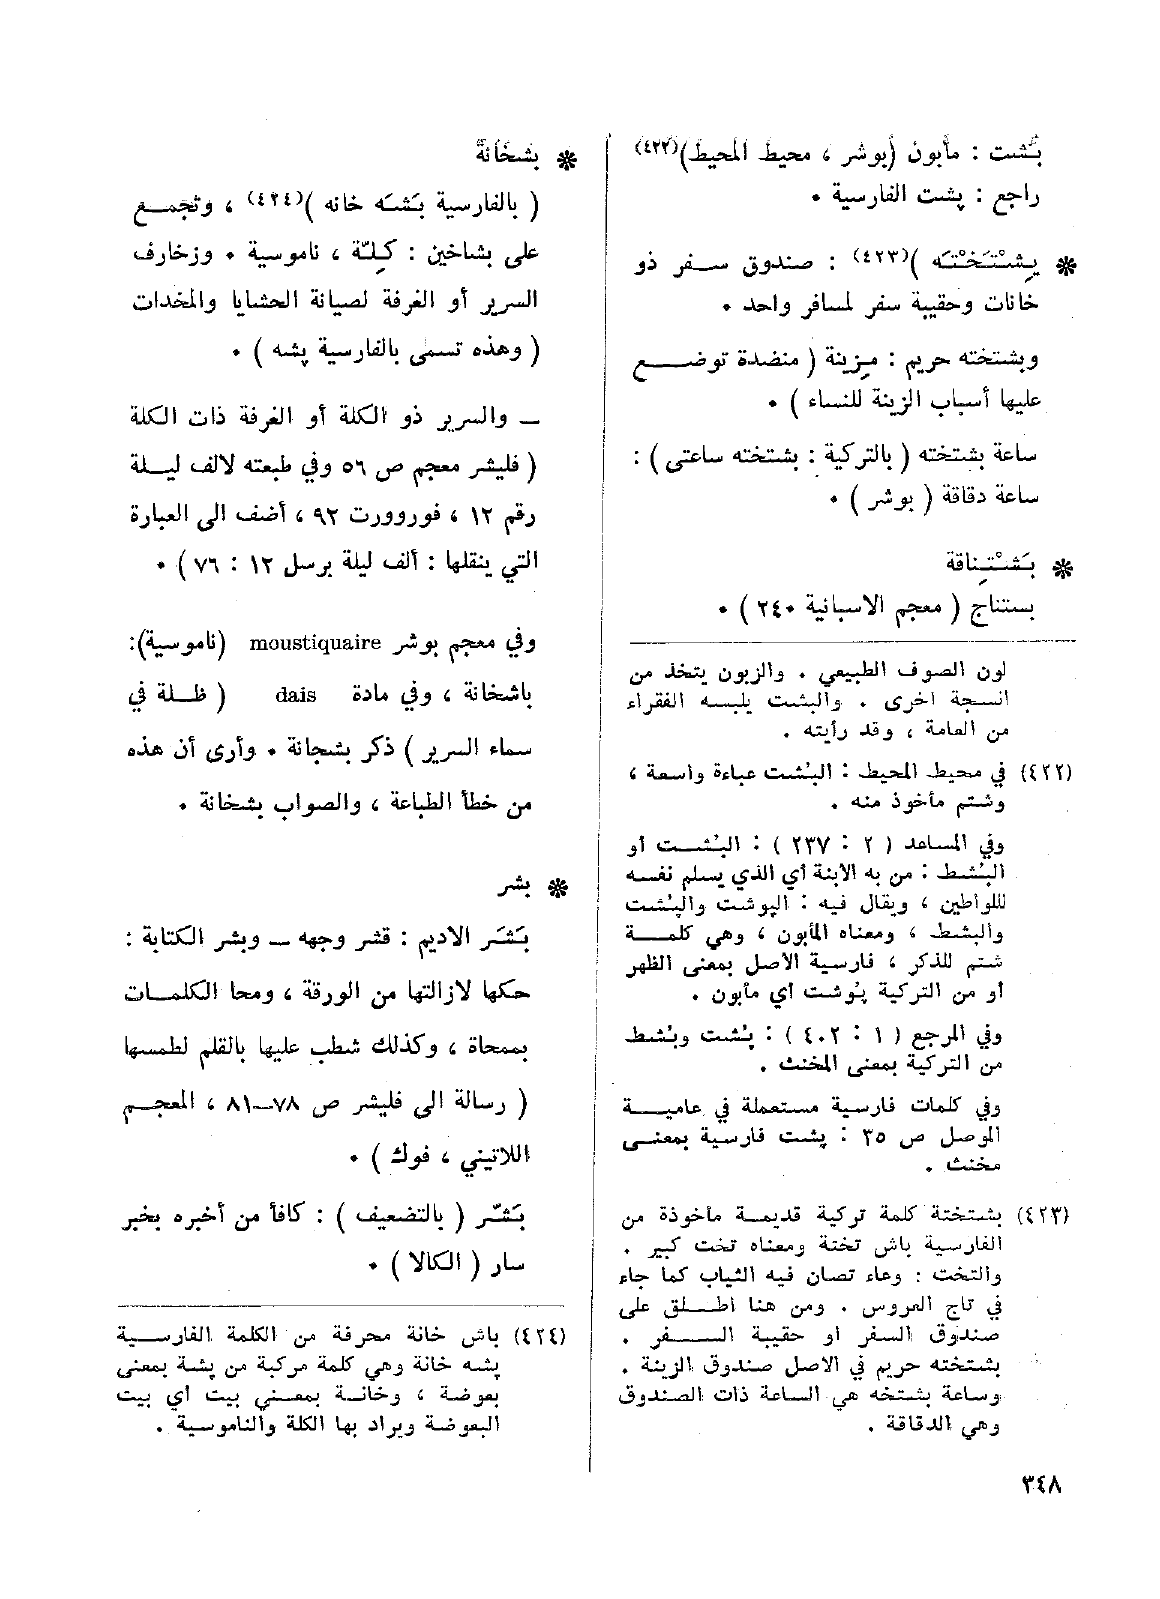 بُشت : مأبون (بوشر ، محيط المحيط)(٤٢٢)
راجع : پشت الفارسية ٠
❋ پِشْتَخْتَه )(٤٢٣) : صندوق سفر ذو
خانات وحقيبة سفر لمسافر واحد ٠
وبشتخته حريم : مزينة ( منضدة توضع
عليها أسباب الزينة للنساء ) ٠
ساعة بشتخته ( بالتركية : بشتخته ساعتى ) :
ساعة دقاقة ( بوشر ) ٠
❋ بَشْتِناقة
بستناج ( معجم الاسبانية ٢٤٠ ) ٠
لون الصوف الطبيعي . والزبون يتخذ من
انسجة اخرى . والبشت يلبسه الفقراء
من العامة ، وقد رأيته .
(٤٢٢) في محيط المحيط : البُشت عباءة واسعة ،
وشتم مأخوذ منه .
وفي المساعد ( ٢ : ٢٣٧ ) : البُشت أو
البُشط : من به الابنة أي الذي يسلم نفسه
للواطين ، ويقال فيه : الپوشت والپُشت
والبشط ، ومعناه المأبون ، وهي كلمة
شتم للذكر ، فارسية الاصل بمعنى الظهر
أو من التركية پُوشت أي مأبون .
وفي المرجع ( ١ : ٤٠٢ ) : پُشت وبُشط
من التركية بمعنى المخنث .
وفي كلمات فارسية مستعملة في عامية
الموصل ص ٣٥ : پشت فارسية بمعنى
مخنث .
(٤٢٣) بشتختة كلمة تركية قديمة مأخوذة من
الفارسية باش تختة ومعناه تخت كبير .
والتخت : وعاء تصان فيه الثياب كما جاء
في تاج العروس . ومن هنا اطلق على
صندوق السفر او حقيبة السفر .
بشتخته حريم في الاصل صندوق الزينة .
وساعة بشتخه هي الساعة ذات الصندوق
وهي الدقاقة .
❋ بشخَانَةٌ
( بالفارسية بَشَه خانه )(٤٢٤) ، وتجمع
على بشاخين : كِلّة ، ناموسية ٠ وزخارف
السرير أو الغرفة لصيانة الحشايا والمخدات
( وهذه تسمى بالفارسية پشه ) ٠
ــ والسرير ذو الكلة أو الغرفة ذات الكلة
( فليشر معجم ص ٥٦ وفي طبعته لالف ليلة
رقم ١٢ ، فوروورت ٩٢ ، أضف الى العبارة
التي ينقلها : ألف ليلة برسل ١٢ : ٧٦ ) ٠
وفي معجم بوشر moustiquaire (ناموسية):
باشخانة ، وفي مادة dais ( ظلة في
سماء السرير ) ذكر بشجانة ٠ وأرى أن هذه
من خطأ الطباعة ، والصواب بشخانة ٠
❋ بشر
بَشَر الاديم : قشر وجهه ــ وبشر الكتابة :
حكها لازالتها من الورقة ، ومحا الكلمات
بممحاة ، وكذلك شطب عليها بالقلم لطمسها
( رسالة الى فليشر ص ٧٨ــ٨١ ، المعجم
اللاتيني ، فوك ) ٠
بَشّر ( بالتضعيف ) : كافأ من أخبره بخبر
سار ( الكالا ) ٠
(٤٢٤) باش خانة محرفة من الكلمة الفارسية
پشه خانة وهي كلمة مركبة من پشة بمعنى
بعوضة ، وخانة بمعنى بيت أي بيت
البعوضة ويراد بها الكلة والناموسية .
٣٤٨